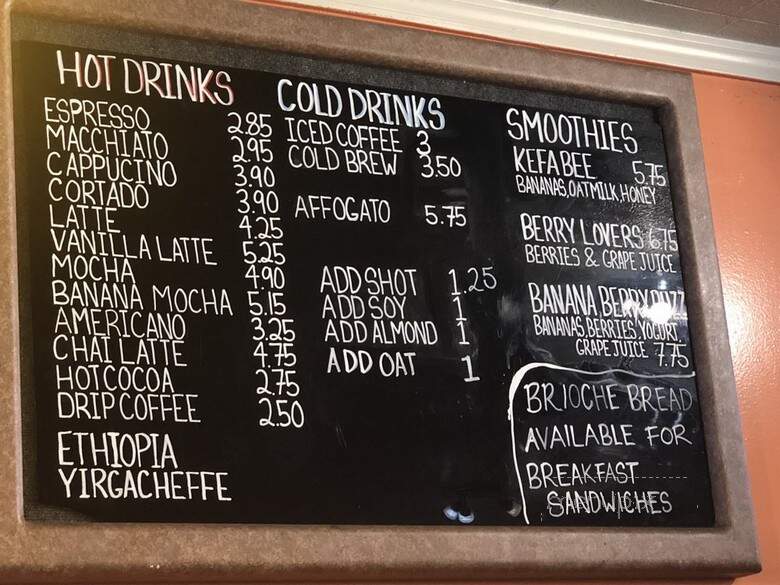 HOT DRINKS
ESPRESSO 2.85
MACCHIATO 2.95
CAPPUCINO 3.90
CORTADO 3.90
LATTE 4.25
VANILLA LATTE 5.25
MOCHA 4.90
BANANA MOCHA 5.15
AMERICANO 3.25
CHAI LATTE 4.75
HOT COCOA 2.75
DRIP COFFEE 2.50
ETHIOPIA
YIRGACHEFFE
COLD DRINKS
ICED COFFEE 3
COLD BREW 3.50
AFFOGATO 5.75
ADD SHOT 1.25
ADD SOY 1
ADD ALMOND 1
ADD OAT 1
SMOOTHIES
KEFA BEE 5.75
BANANAS, OATMILK, HONEY
BERRY LOVERS 6.75
BERRIES & GRAPE JUICE
BANANA BERRY
BANANAS, BERRIES, YOGURT,
GRAPE JUICE 7.75
BRIOCHE BREAD
AVAILABLE FOR
BREAKFAST
SANDWICHES